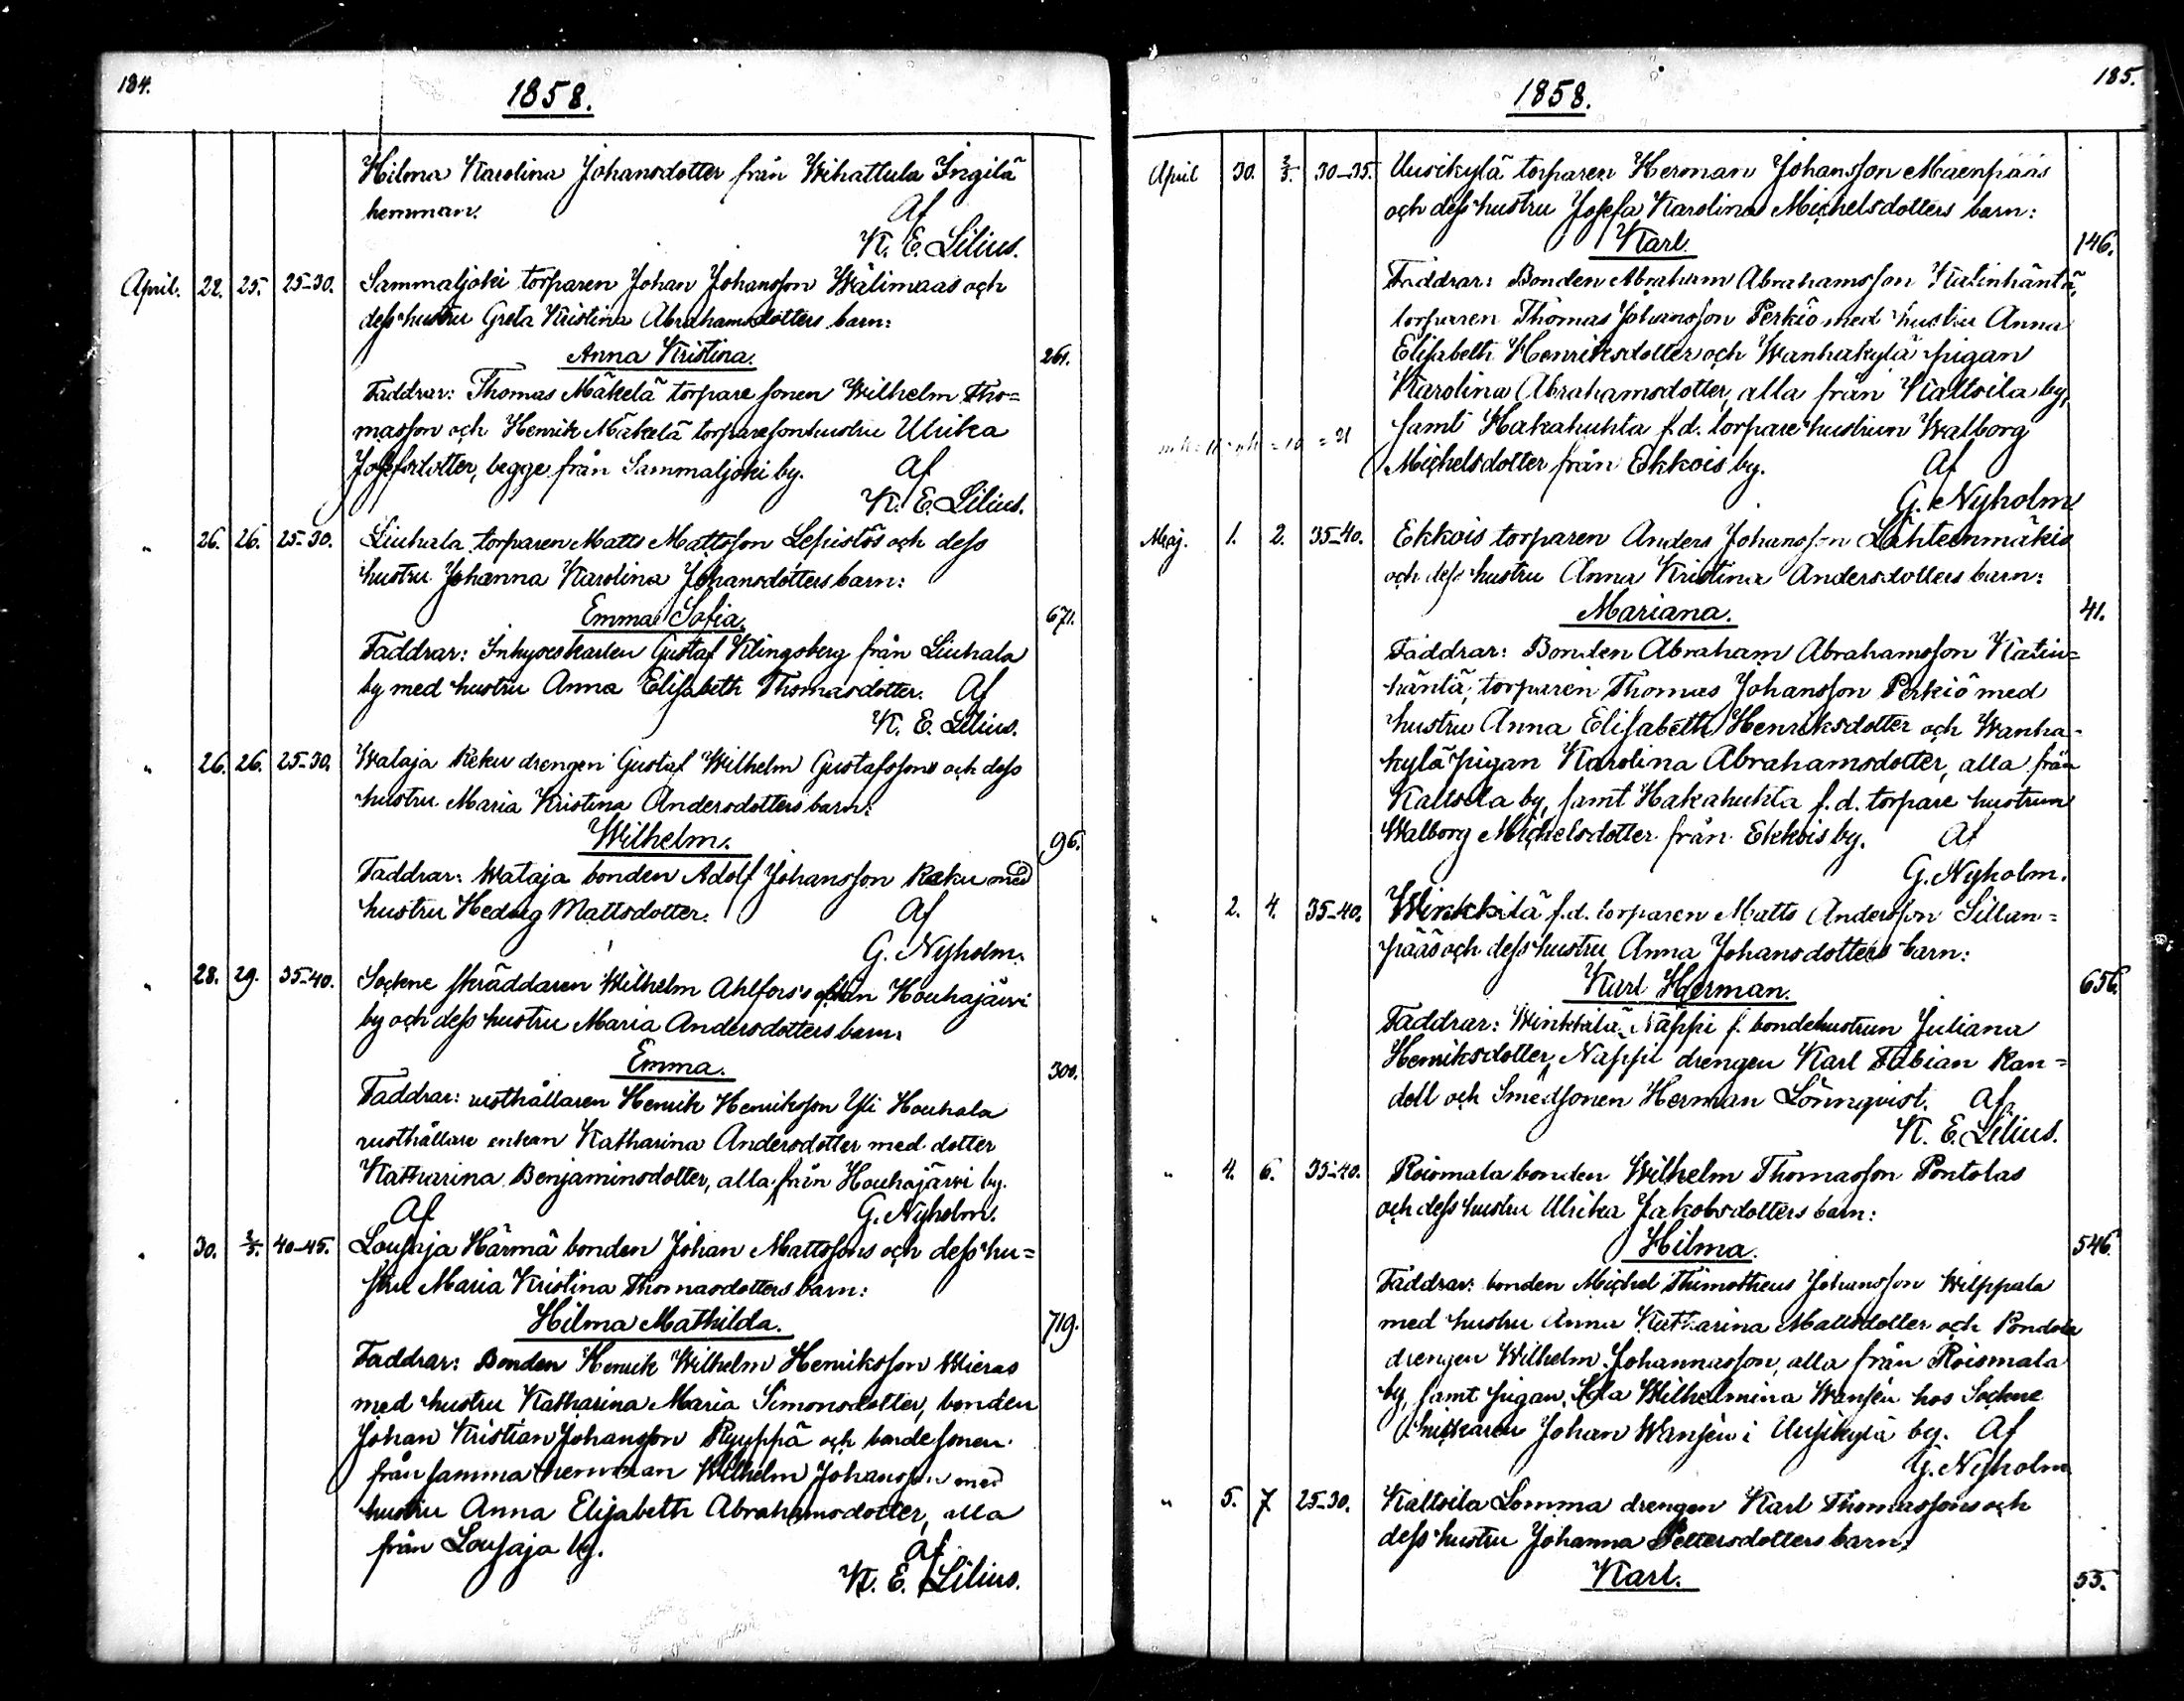 184.
1858.
Hilma Karolina Johansdotter från Wihattula Ingilä
hemman. Af
K. E. Lilius.
April. 22. 25. 25-30. Sammaljoki torparen Johan Johansson Wälimaas och
dess hustru Greta Kristina Abrahamsdotters barn:
Anna Kristina. 261.
Faddrar: Thomas Mäkelä torpare sonen Wilhelm Tho=
masson och Henrik Mäkelä torparesonhustru Ulrika
Josefsdotter, begge från Sammaljoki by. Af
K. E. Lilius.
" 26. 26. 25-30. Liuhala torparen Matts Mattsson Lepistös och dess
hustru Johanna Karolina Johansdotters barn:
Emma Sofia. 671.
Faddrar: Inhyseskarlen Gustaf Klingsberg från Liuhala
by med hustru Anna Elisabeth Thomasdotter. Af
K. E. Lilius.
" 26. 26. 25-30. Wataja Reku drengen Gustaf Wilhelm Gustafssons och dess
hustru Maria Kristina Andersdotters barn:
Wilhelm. 96.
Faddrar: Wataja bonden Adolf Johansson Reku med
hustru Hedvig Mattsdotter. Af
G. Nyholm.
" 28. 29. 35-40. Sockne skräddaren Wilhelm Ahlfors's från Houhajärvi
by och dess hustru Maria Andersdotters barn:
Emma. 300.
Faddrar: rusthållaren Henrik Henriksson Yli Houhala
rusthållare enkan Katharina Andersdotter med dotter
Katharina Benjaminsdotter, alla från Houhajärvi by.
Af G. Nyholm.
" 30. 2/5. 40-45. Lousaja Härmä bonden Johan Mattssons och dess hu=
stru Maria Kristina Thomasdotters barn:
Hilma Mathilda. 719.
Faddrar: Bonden Henrik Wilhelm Henriksson Wieras
med hustru Katharina Maria Simonsdotter, bonden
Johan Kristian Johansson Ryyppä och bonde sonen
från samma hemman Wilhelm Johansson med
hustru Anna Elisabeth Abrahamsdotter, alla
från Lousaja by. Af
K. E. Lilius.
185.
1858.
April 30. 2/5. 30-35. Uusikylä torparen Herman Johansson Mäenpääs
och dess hustru Josefa Karolina Michelsdotters barn:
Karl. 146.
Faddrar: Bonden Abraham Abrahamsson Katinhäntä,
torparen Thomas Johansson Perkiö med hustru Anna
Elisabeth Henriksdotter och Wanhakylä pigan
Karolina Abrahamsdotter, alla från Kaltsila by,
samt Hakahuhta f.d. torpare hustrun Walborg
Michelsdotter från Ekkois by. Af
G. Nyholm
Maj. 1. 2. 35-40. Ekkois torparen Anders Johansson Lähteenmäkis
och dess hustru Anna Kristina Andersdotters barn:
Mariana. 41.
Faddrar: Bonden Abraham Abrahamsson Katin=
häntä, torparen Thomas Johansson Perkiö med
hustru Anna Elisabeth Henriksdotter och Wanha=
kylä pigan Karolina Abrahamsdotter, alla från
Kaltsila by, samt Hakahuhta f.d. torpare hustrun
Walborg Michelsdotter från Ekkois by. Af
G. Nyholm.
" 2. 4. 35-40. Winkkilä f.d. torparen Matts Andersson Sillan=
pääs och dess hustru Anna Johansdotters barn:
Karl Herman. 656.
Faddrar: Winkkilä Näppi f. bondehustrun Juliana
Henriksdotter, Näppi drengen Karl Fabian Ran=
dell och Smedsonen Herman Lönnqvist. Af
K. E. Lilius.
" 4. 6. 35-40. Roismala bonden Wilhelm Thomasson Pontolas
och dess hustru Ulrika Jakobsdotters barn:
Hilma. 546.
Faddrar: bonden Michel Thimotheus Johansson Wilppala
med hustru Anna Katharina Mattsdotter och Pondola
drengen Wilhelm Johannasson, alla från Roismala
by, samt pigan Wilhelmina Wansén hos Sockne
snickaren Johan Wansén i Uusikylä by. Af
G. Nyholm
" 5. 7. 25-30. Kaltsila Lomma drengen Karl Thomassons och
dess hustru Johanna Pettersdotters barn:
Karl. 55.